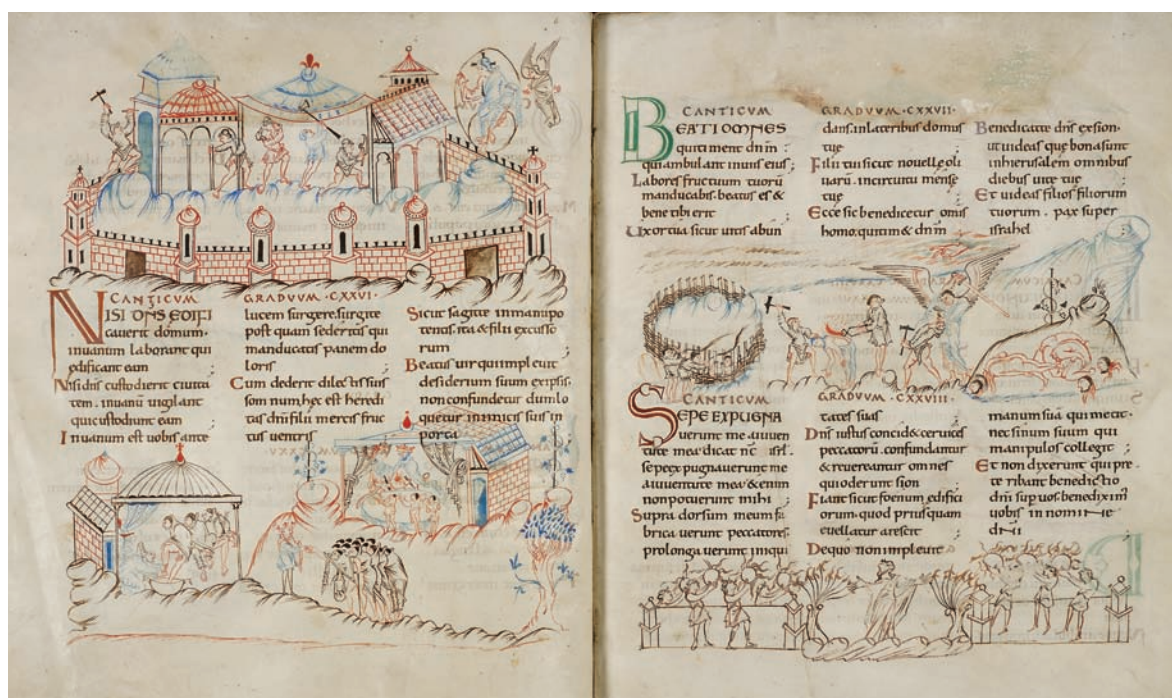 CANTICUM
NISI DNS EDIFI
cauerit domum.
inuanum laborant qui
edificant eam
Nisi dns custodierit ciuita
tem. inuanu uigilant
qui custodiunt eam
Inuanum est uobis ante
GRADUUM · CXXVI ·
lucem surgere. surgite
post quam sederitis qui
manducatis panem do
loris
Cum dederit dilectis suis
som num. hęc est heredi
tas dni filii merces fruc
tus uentris
Sicut sagitte in manu po
tentis. ita & filii excusso
rum
Beatus uir qui impleuit
desiderium suum ex ipsis.
non confundetur dum lo
quetur inimicis suis in
porta
CANTICUM
BEATI OMNES
qui timent dnm
qui ambulant in uiis eius ;
Labores fructuum tuorū
manducabis. beatus es &
bene tibi erit
Uxor tua sicut uitis abun
GRADUUM · CXXVII ·
dans. in lateribus domus
tuę
Filii tui sicut nouellę oli
uarū. in circuitu mensę
tuę
Ecce sic benedicetur omis
homo. qui tim & dnm
Benedicat te dns ex sion.
ut uideas que bona sunt
in hierusalem omnibus
diebus uitę tuę
Et uideas filios filiorum
tuorum. pax super
israhel
CANTICUM
SEPE EXPUGNA
uerunt me a iuuen
tute mea. dicat nc isrl.
sepe expugnauerunt me
a iuuentute mea & enim
non potuerunt mihi ;
Supra dorsum meum fa
bricauerunt peccatores.
prolongauerunt iniqui
GRADUUM · CXXVIII ·
tates suas
Dns iustus concid& ceruices
peccatorū. confundantur
& reuereantur omnes
qui oderunt sion
Fiant sicut foenum edifici
orum. quod prius quam
euellatur arescit
De quo non impleuit
manum suā qui mecit.
nec sinum suum qui
manipulos collegit
Et non dixerunt qui pre
teribant benedictio
dni sup uos. benedixim
uobis in nomine
dni